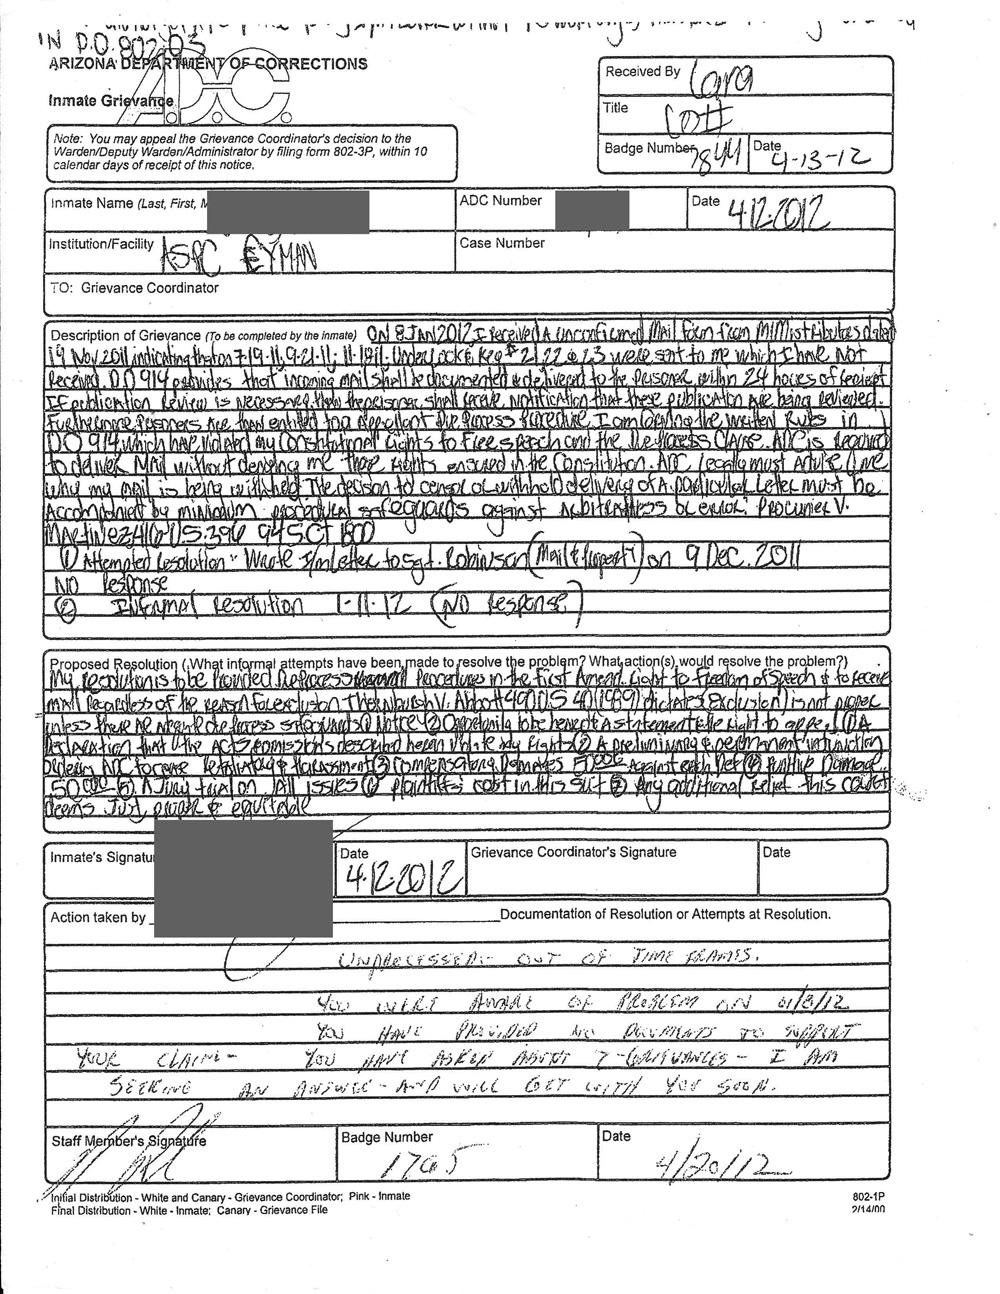 IN D.O. 802.03
ARIZONA DEPARTMENT OF CORRECTIONS
Inmate Grievance
Note: You may appeal the Grievance Coordinator's decision to the
Warden/Deputy Warden/Administrator by filing form 802-3P, within 10
calendar days of receipt of this notice.
Received By Lara
Title COII
Badge Number 7844 Date 4-13-12
Inmate Name (Last, First, M
ADC Number
Date 4.12.2012
Institution/Facility ASPC EYMAN
Case Number
TO: Grievance Coordinator
Description of Grievance (To be completed by the inmate) ON 8 JAN 2012 I received A unconfirmed Mail form from MIM Distributors dated
19 Nov 2011 indicating that on 7-19-11, 9-21-11, 11-18-11. Under Lock & Key # 21 22 & 23 were sent to me which I have Not
Received. D.O 914 provides that incoming mail shall be documented & delivered to the prisoner within 24 hours of receipt
If publication Review is necessary then the prisoner shall receive Notification that these publication are being reviewed.
Furthermore Prisoners Are then entitled to a Due Process Procedure. I am the written Rules in
D.O 914 which have violated my Constitutional Rights to Free speech and the Due Process Clause. ADC is Required
to deliver Mail without denying me these rights ensured in the Constitution. ADC legally must me
why my mail is being withheld. The decision to censor or withhold delivery of A particular Letter must be
Accompanied by minimum procedural safeguards against Arbitrariness or error. Procunier V.
Martinez 416 US. 396 94 S CT 1800
① Attempted Resolution: Wrote I/m Letter to Sgt. Robinson (Mail & Property) on 9 Dec. 2011
NO Response
② Informal resolution 1-11-12 (NO Response)
Proposed Resolution (.What informal attempts have been made to resolve the problem? What action(s) would resolve the problem?)
My resolution is to be Provided Due Process Procedures in the First Amend. Right to Freedom of Speech & to receive
mail Regardless of the reason for exclusion Thornburgh V. Abbott 490 U.S 401 (1989) dictates Exclusion is not proper
unless there are Due Process safeguards ① Notice ② Opportunity to be heard & A statement & the right to appeal. ① A
Declaration that the ACTS & omissions described herein violate my Rights ② A preliminary & permanent injunction
Ordering ADC to cease Retaliatory & Harassment ③ Compensatory Damages 5,000 Against each Def ④ Punitive Damage
50 000 ⑤ A Jury trial on All issues ⑥ plaintiffs cost in this suit ⑦ Any additional relief this court
deems Just, proper & equitable
Inmate's Signatu
Date 4.12.2012
Grievance Coordinator's Signature
Date
Action taken by
Documentation of Resolution or Attempts at Resolution.
UNPROCESSED:- OUT OF TIME FRAMES.
YOU WERE AWARE OF PROBLEM ON 01/8/12
YOU HAVE PROVIDED NO DOCUMENTS TO SUPPORT
YOUR CLAIM- YOU HAVE ASKED ABOUT 7-GRIEVANCES - I AM
SEEKING AN ANSWER - AND WILL GET WITH YOU SOON.
Staff Member's Signature
Badge Number 1765
Date 4/20/12
Initial Distribution - White and Canary - Grievance Coordinator; Pink - Inmate
Final Distribution - White - Inmate; Canary - Grievance File
802-1P
2/14/00